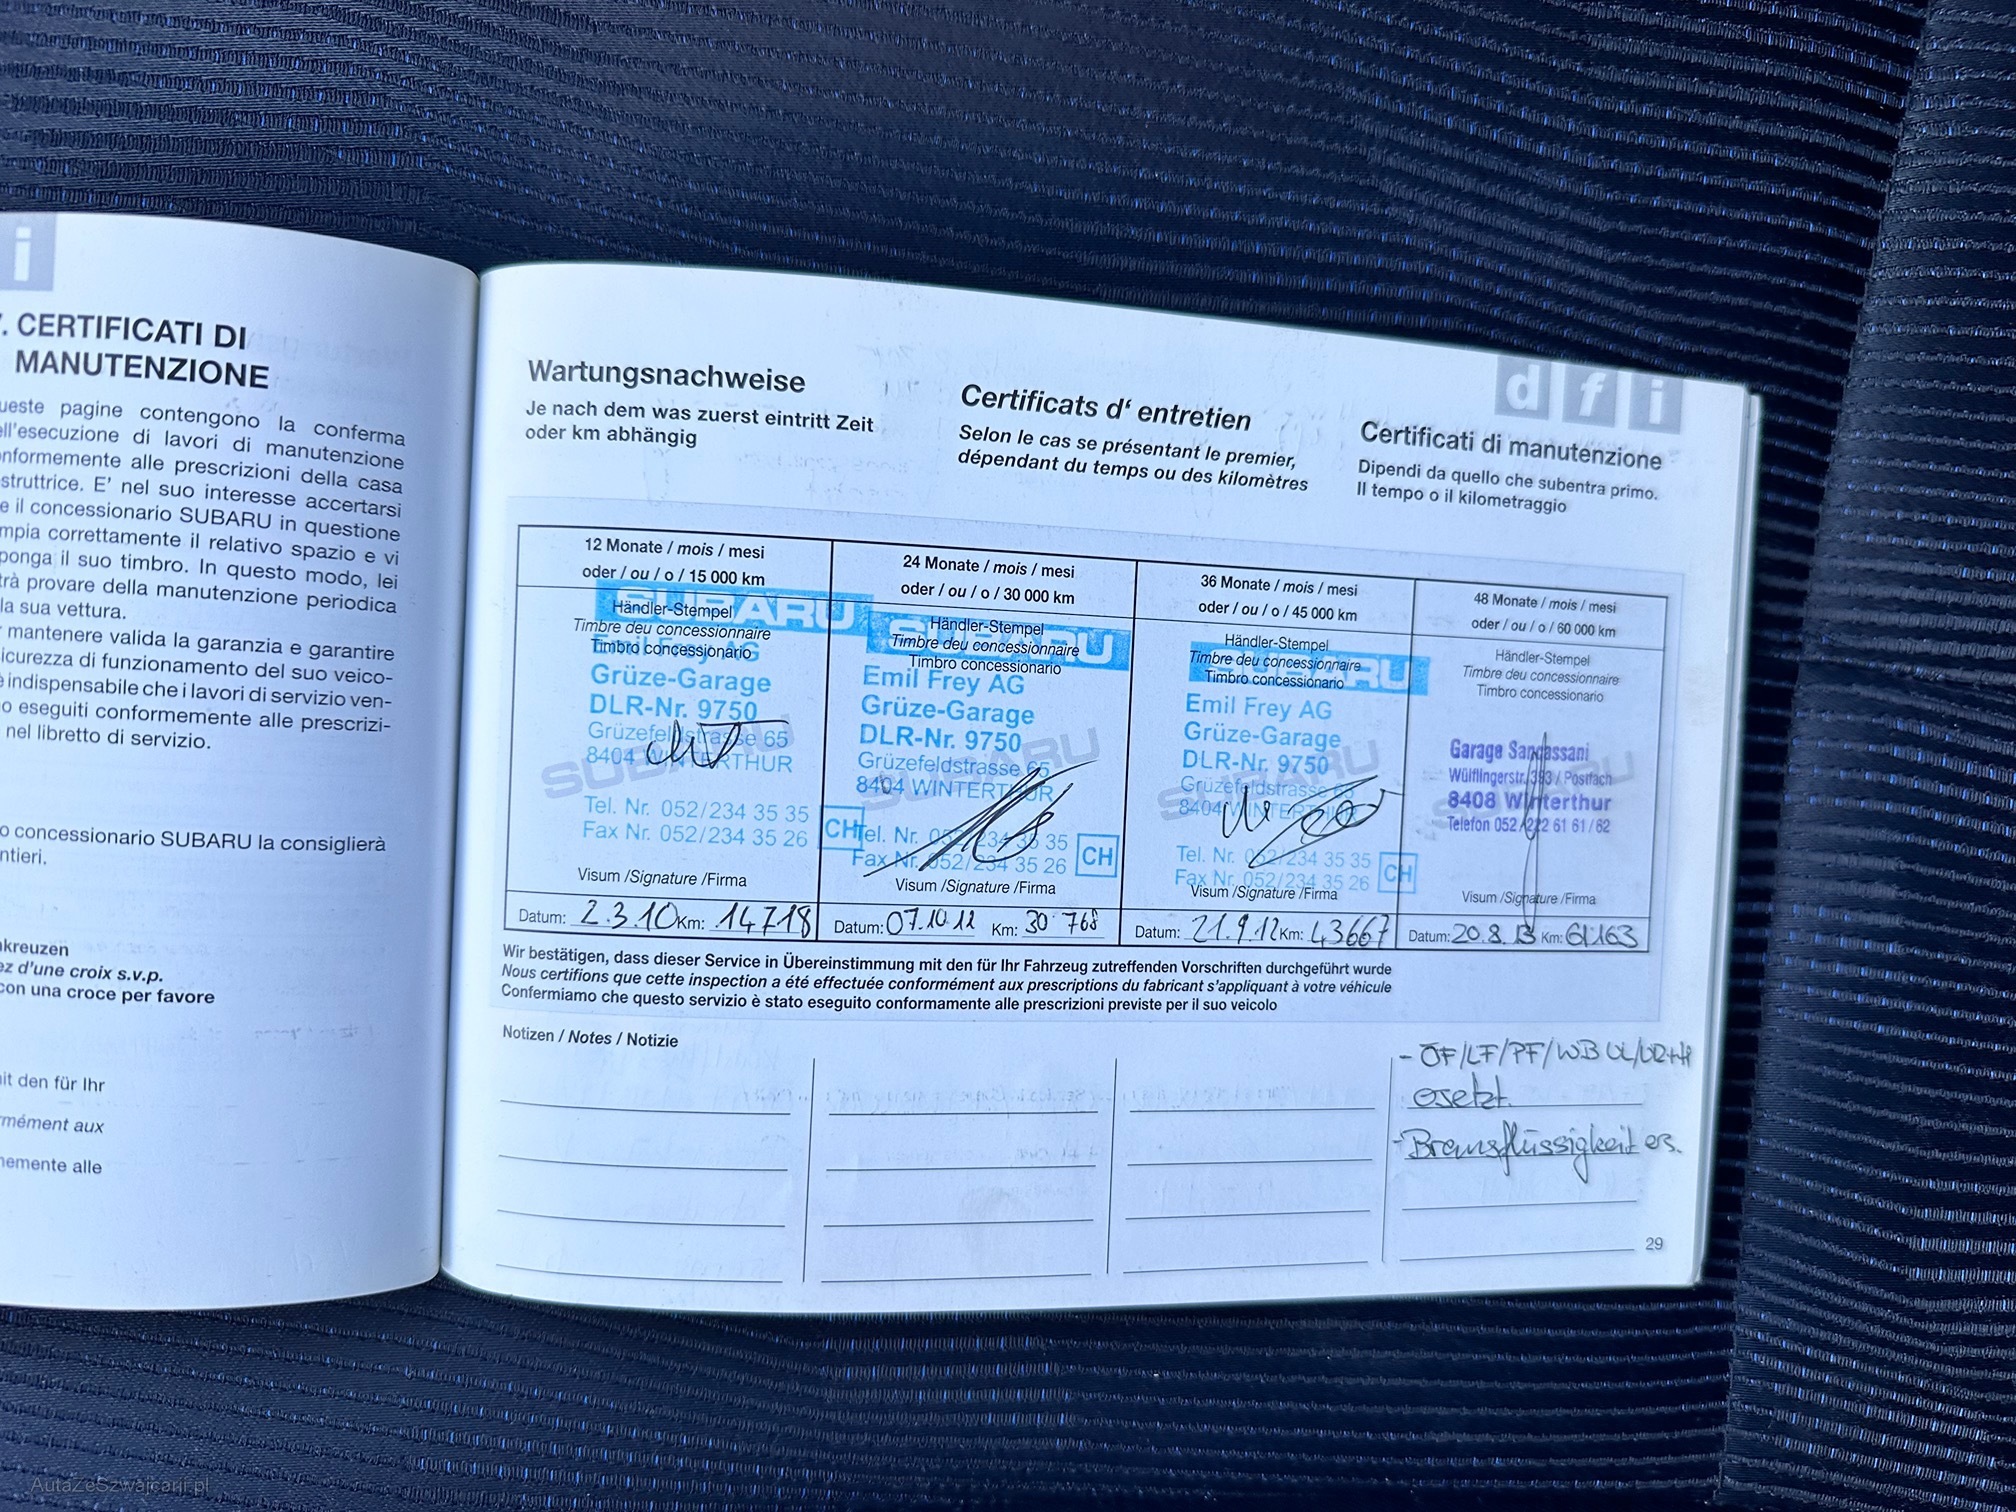 i
. CERTIFICATI DI
MANUTENZIONE
ueste pagine contengono la conferma
ell'esecuzione di lavori di manutenzione
nformemente alle prescrizioni della casa
struttrice. E' nel suo interesse accertarsi
e il concessionario SUBARU in questione
mpia correttamente il relativo spazio e vi
ponga il suo timbro. In questo modo, lei
trà provare della manutenzione periodica
la sua vettura.
mantenere valida la garanzia e garantire
icurezza di funzionamento del suo veico-
è indispensabile che i lavori di servizio ven-
o eseguiti conformemente alle prescrizi-
nel libretto di servizio.
o concessionario SUBARU la consiglierà
ntieri.
kreuzen
ez d'une croix s.v.p.
con una croce per favore
it den für Ihr
mément aux
emente alle
d f i
Wartungsnachweise
Je nach dem was zuerst eintritt Zeit
oder km abhängig
Certificats d' entretien
Selon le cas se présentant le premier,
dépendant du temps ou des kilomètres
Certificati di manutenzione
Dipendi da quello che subentra primo.
Il tempo o il kilometraggio
12 Monate / mois / mesi
oder / ou / o / 15 000 km
SUBARU
Händler-Stempel
Timbre deu concessionnaire
Timbro concessionario
Emil Frey AG
Grüze-Garage
DLR-Nr. 9750
Grüzefeldstrasse 65
8404 WINTERTHUR
SUBARU
Tel. Nr. 052/234 35 35
Fax Nr. 052/234 35 26
CH
Visum /Signature /Firma
Datum: 2.3.10 Km: 14718
24 Monate / mois / mesi
oder / ou / o / 30 000 km
SUBARU
Händler-Stempel
Timbre deu concessionnaire
Timbro concessionario
Emil Frey AG
Grüze-Garage
DLR-Nr. 9750
Grüzefeldstrasse 65
8404 WINTERTHUR
SUBARU
Tel. Nr. 052/234 35 35
Fax Nr. 052/234 35 26
CH
Visum /Signature /Firma
Datum: 07.10.11 Km: 30 768
36 Monate / mois / mesi
oder / ou / o / 45 000 km
SUBARU
Händler-Stempel
Timbre deu concessionnaire
Timbro concessionario
Emil Frey AG
Grüze-Garage
DLR-Nr. 9750
Grüzefeldstrasse 65
8404 WINTERTHUR
SUBARU
Tel. Nr. 052/234 35 35
Fax Nr. 052/234 35 26
CH
Visum /Signature /Firma
Datum: 21.9.12 Km: 43667
48 Monate / mois / mesi
oder / ou / o / 60 000 km
Händler-Stempel
Timbre deu concessionnaire
Timbro concessionario
Garage Sangassani
Wülflingerstr. 393 / Postfach
8408 Winterthur
Telefon 052/222 61 61 / 62
SUBARU
Visum /Signature /Firma
Datum: 20.8.13 Km: 61163
Wir bestätigen, dass dieser Service in Übereinstimmung mit den für Ihr Fahrzeug zutreffenden Vorschriften durchgeführt wurde
Nous certifions que cette inspection a été effectuée conformément aux prescriptions du fabricant s'appliquant à votre véhicule
Confermiamo che questo servizio è stato eseguito conformamente alle prescrizioni previste per il suo veicolo
Notizen / Notes / Notizie
- ÖF/LF/PF/WB
ersetzt.
- Bremsflüssigkeit ers.
29
AutaZeSzwajcarii.pl